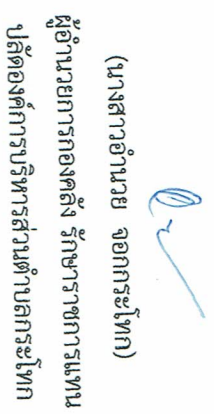 (นางสาวอำนวย จอกกระโทก)
ผู้อำนวยการกองคลัง รักษาราชการแทน
ปลัดองค์การบริหารส่วนตำบลกระโทก